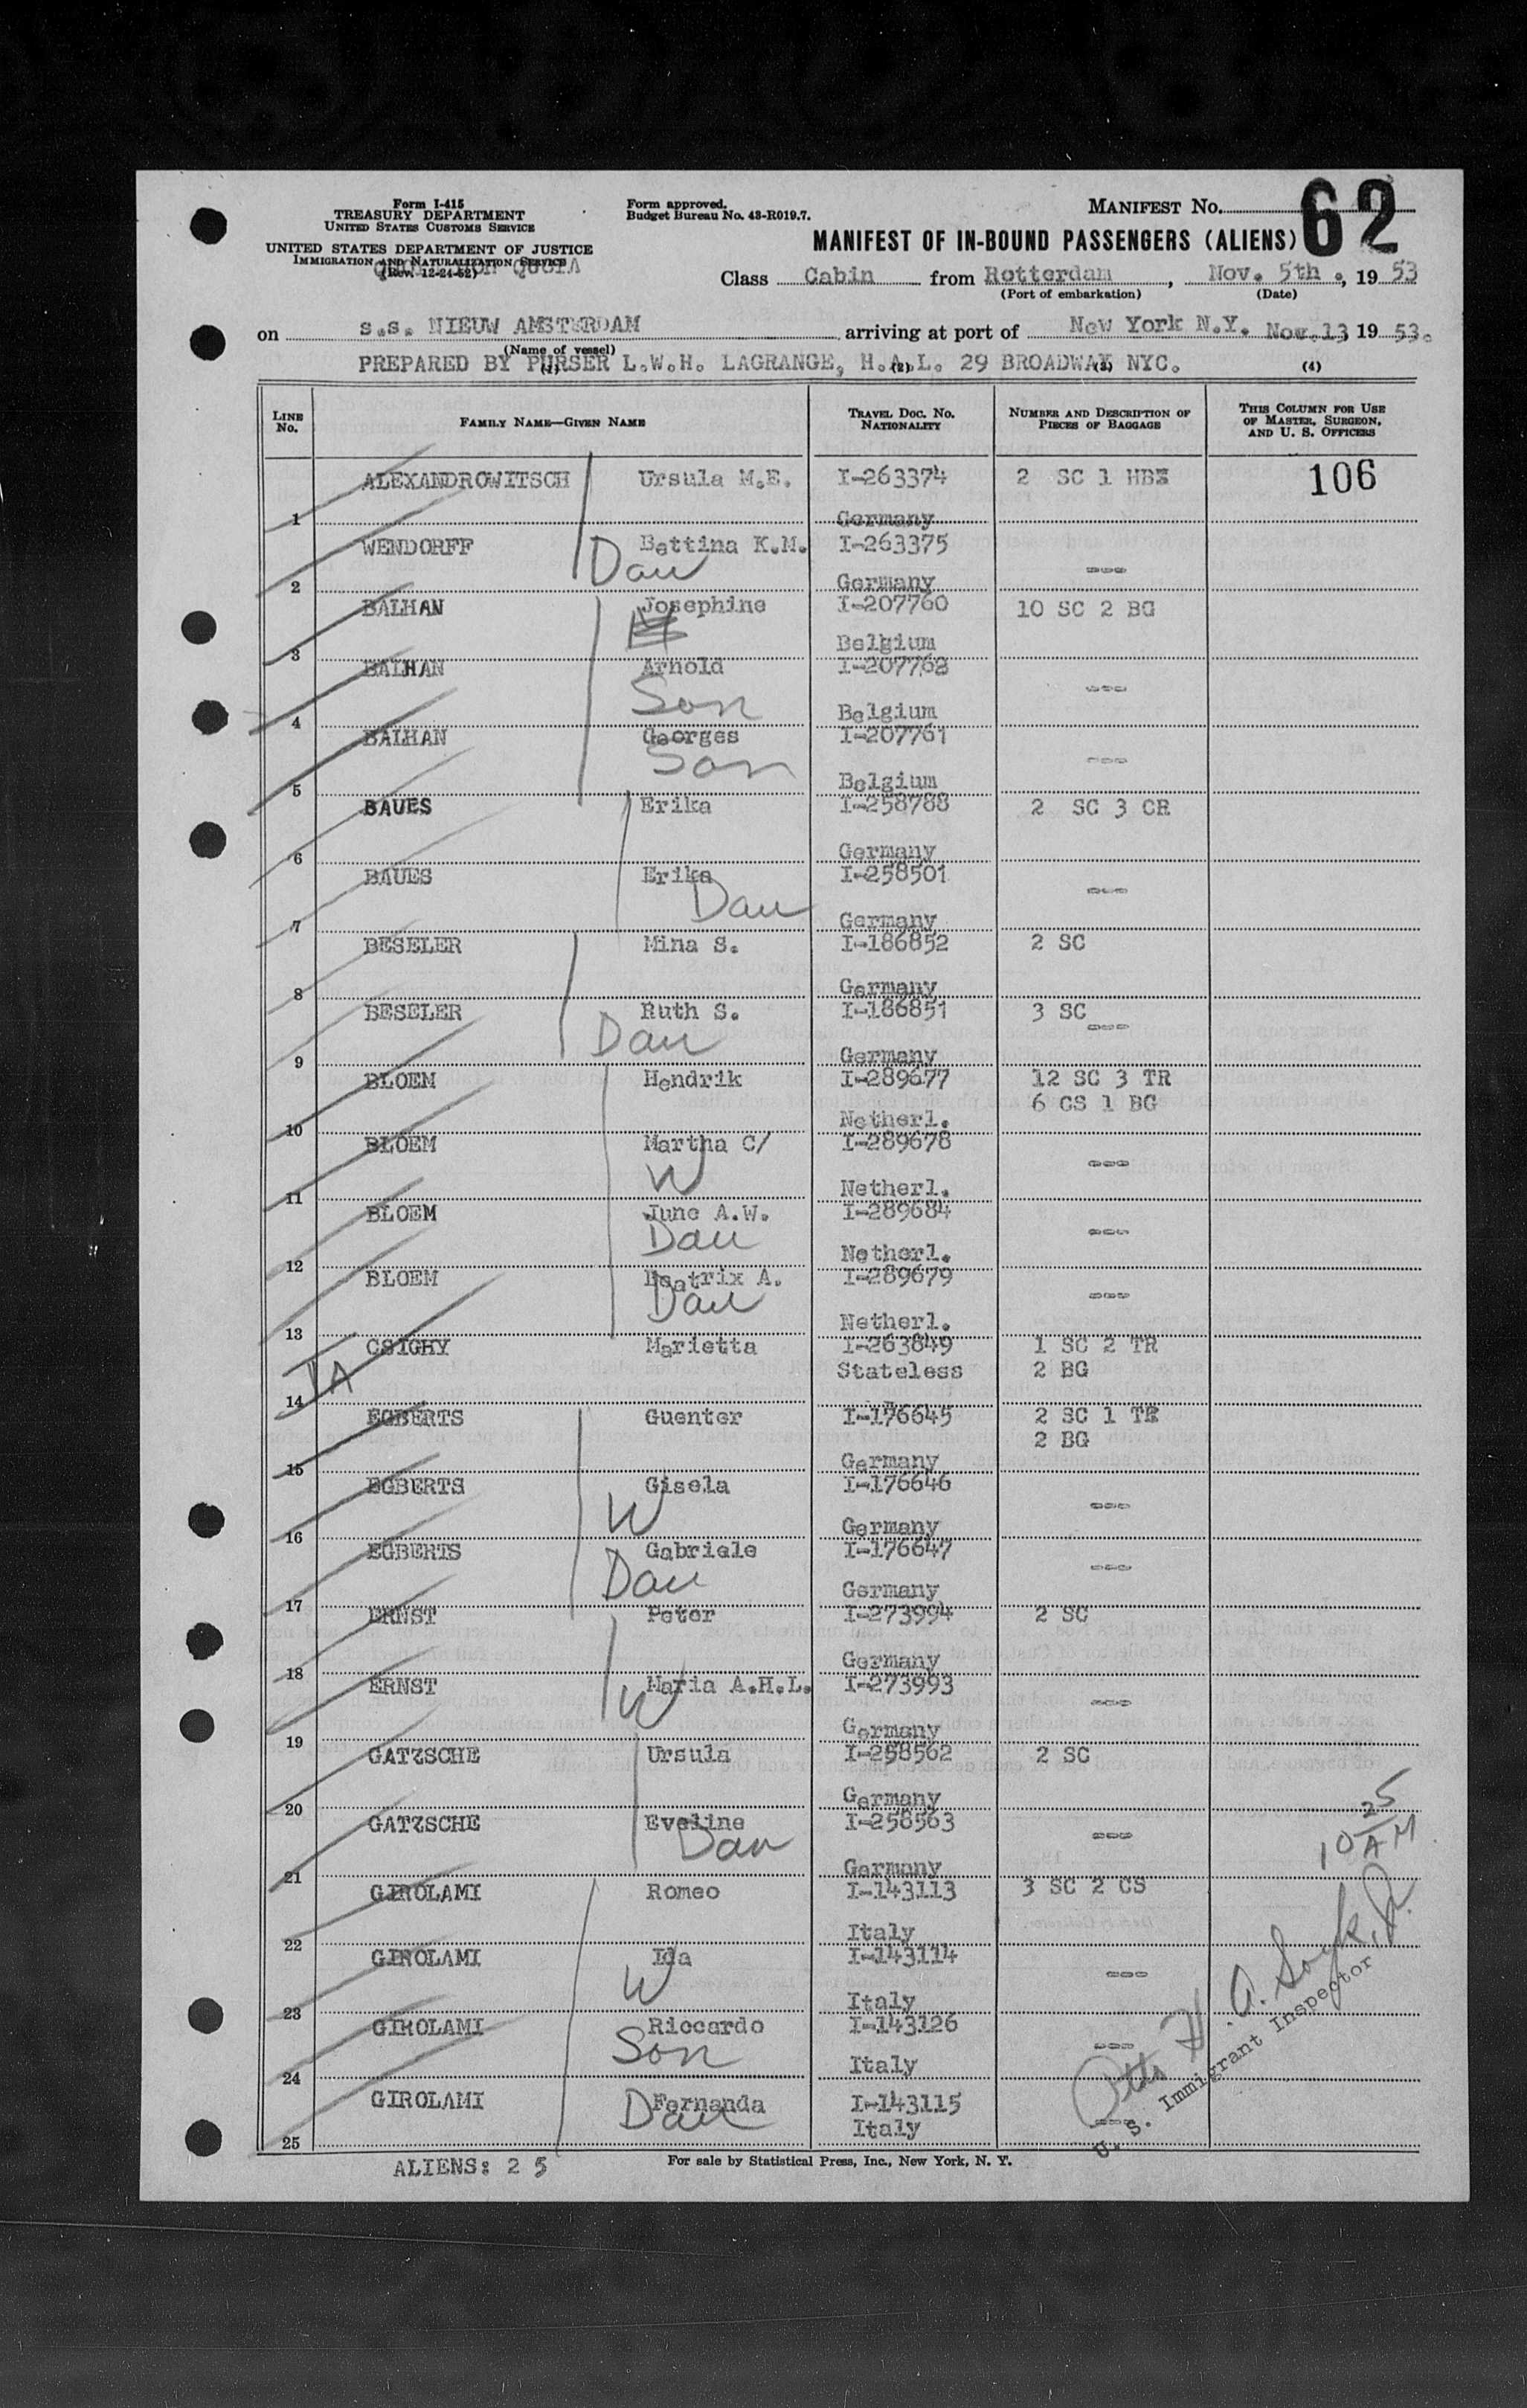 Form I-415
TREASURY DEPARTMENT
UNITED STATES CUSTOMS SERVICE
UNITED STATES DEPARTMENT OF JUSTICE
IMMIGRATION AND NATURALIZATION SERVICE
(Rev. 12-24-52)
QUOTA
Form approved.
Budget Bureau No. 43-R019.7.
MANIFEST No. 62
MANIFEST OF IN-BOUND PASSENGERS (ALIENS)
Class Cabin from Rotterdam, Nov. 5th., 1953
(Port of embarkation) (Date)
on s.s. NIEUW AMSTERDAM arriving at port of New York N.Y. Nov.13, 1953.
(Name of vessel)
PREPARED BY PURSER L.W.H. LAGRANGE, H.A.L. 29 BROADWAY NYC.
(1) (2) (3) (4)
LINE No. FAMILY NAME—GIVEN NAME TRAVEL DOC. No. NATIONALITY NUMBER AND DESCRIPTION OF PIECES OF BAGGAGE THIS COLUMN FOR USE OF MASTER, SURGEON, AND U. S. OFFICERS
ALEXANDROWITSCH Ursula M.E. I-263374 2 SC 1 HB 106
1 Germany
WENDORFF Bettina K.M. I-263375
Dau ---
2 Germany
BALHAN Josephine I-207760 10 SC 2 BG
3 Belgium
BALHAN Arnold I-207762
Son ---
4 Belgium
BALHAN Georges I-207761
Son ---
5 Belgium
BAUES Erika I-258788 2 SC 3 CR
6 Germany
BAUES Erika I-258501
Dau ---
7 Germany
BESELER Mina S. I-186852 2 SC
8 Germany
BESELER Ruth S. I-186851 3 SC
Dau ---
9 Germany
BLOEM Hendrik I-289677 12 SC 3 TR
6 CS 1 BG
10 Netherl.
BLOEM Martha C/ I-289678
W ---
11 Netherl.
BLOEM June A.W. I-289684
Dau ---
12 Netherl.
BLOEM Beatrix A. I-289679
Dau ---
13 Netherl.
CSIGHY Marietta I-263849 1 SC 2 TR
1A Stateless 2 BG
14
EGBERTS Guenter I-176645 2 SC 1 TR
2 BG
15 Germany
EGBERTS Gisela I-176646
W ---
16 Germany
EGBERTS Gabriele I-176647
Dau ---
17 Germany
ERNST Peter I-273994 2 SC
18 Germany
ERNST Maria A.H.L. I-273993
W ---
19 Germany
GATZSCHE Ursula I-258562 2 SC
20 Germany
GATZSCHE Eveline I-258563
Dau ---
10 25 AM
21 Germany
GIROLAMI Romeo I-143113 3 SC 2 CS
22 Italy
GIROLAMI Ida I-143114
W ---
23 Italy
GIROLAMI Riccardo I-143126
Son ---
24 Italy
GIROLAMI Fernanda I-143115
Dau ---
25 Italy
U. S. Immigrant Inspector
ALIENS: 2 5
For sale by Statistical Press, Inc., New York, N. Y.